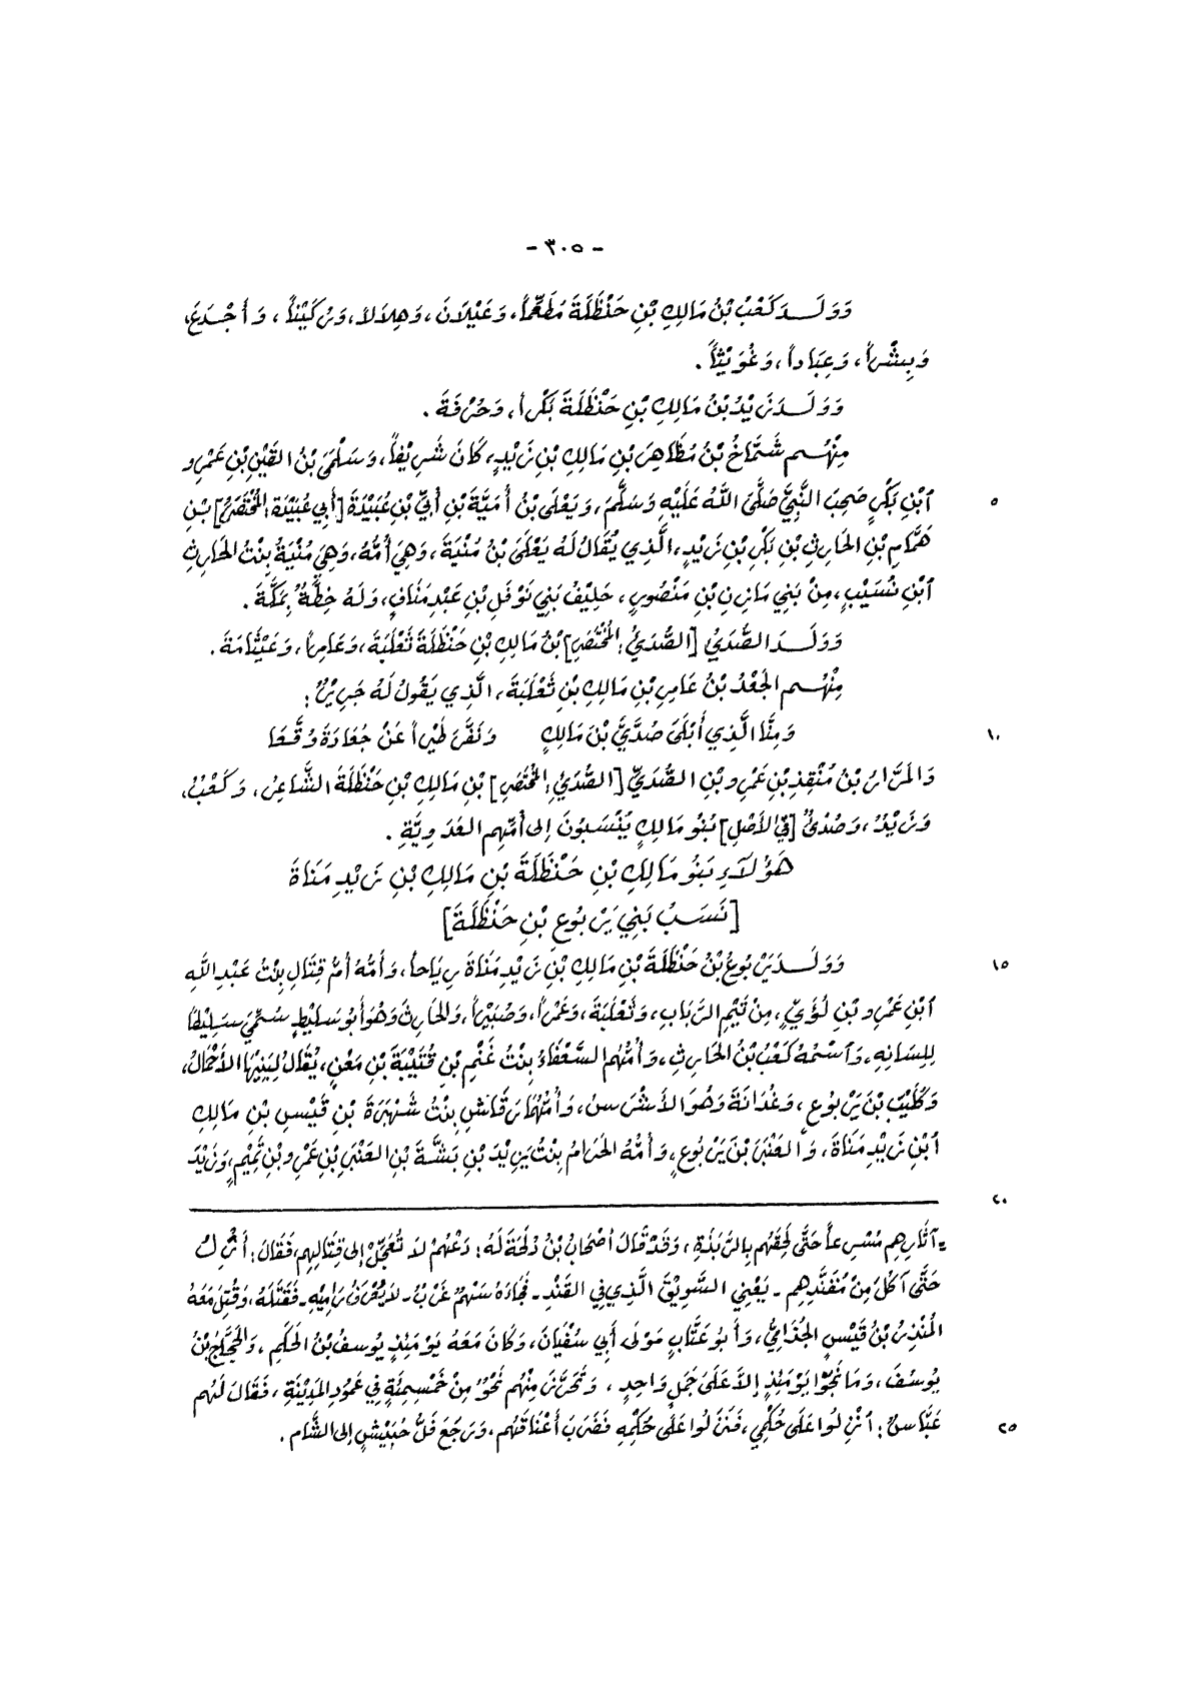 - ٣٠٥ -
وَوَلَـدَ كَعْبُ بْنُ مَالِكِ بْنِ حَنْظَلَةَ مُطَعَّماً، وَعَيْلَانَ، وَهِلَالاً، وَرُكَيْناً، وَأَجْدَعَ،
وَبِشْراً، وَعِبَاداً، وَغُوَيْثاً.
وَوَلَـدَ زَيْدُ بْنُ مَالِكِ بْنِ حَنْظَلَةَ بَكْراً، وَحُرْفَةَ.
مِنْهُـم شَمَّاخُ بْنُ مُظَاهِرَ بْنِ مَالِكِ بْنِ زَيْدٍ، كَانَ شَرِيْفاً، وَسَلْمَى بْنُ القَيْنِ بْنِ عَمْرِو
ٱبْنِ بَكْرٍ صَحِبَ النَّبِيَّ صَلَّىَ اللَّهُ عَلَيْهِ وَسَلَّمَ، وَيَعْلَى بْنُ أُمَيَّةَ بْنِ أُبَيِّ بْنِ عُبَيْدَةَ [أَبِي عُبَيْدَةَ: المُخْتَصَرُ] بْنِ
٥
هَمَّامِ بْنِ الحَارِثِ بْنِ بَكْرِ بْنِ زَيْدٍ، الَّذِي يُقَالُ لَهُ يَعْلَىَ بْنُ مُنْيَةَ، وَهِيَ أُمُّهُ، وَهِيَ مُنْيَةُ بِنْتُ الحَارِثِ
ٱبْنِ نُسَيْبٍ، مِنْ بَنِي مَازِنِ بْنِ مَنْصُورٍ، حَلِيْفُ بَنِي نَوْفَلِ بْنِ عَبْدِ مَنَافٍ، وَلَهُ خِطَّةٌ بِمَكَّةَ.
وَوَلَـدَ الصُّدَيُّ [الصُّدَيُّ: المُخْتَصَرِ] بْنُ مَالِكِ بْنِ حَنْظَلَةَ ثَعْلَبَةَ، وَعَامِراً، وَعَيْثَامَةَ.
مِنْهُـم الجَعْدُ بْنُ عَامِرِ بْنِ مَالِكِ بْنِ ثَعْلَبَةَ، الَّذِي يَقُولُ لَهُ جَرِيْرٌ:
وَمِنَّا الَّذِي أَبْلَى صُدَيَّ بْنَ مَالِكٍ وَنَفَّرَ طَيْراً عَنْ جُعَادَةَ وُقَّعَا
١٠
وَالمَرَّارُ بْنُ مُنْقِذِ بْنِ عَمْرِو بْنِ الصُّدَيِّ [الصُّدَيُّ: المُخْتَصَرِ] بْنِ مَالِكِ بْنِ حَنْظَلَةَ الشَّاعِرُ، وَكَعْبٌ،
وَزَيْدٌ، وَصُدَيٌّ [فِي الأَصْلِ] بَنُو مَالِكٍ يُنْسَبُونَ إِلى أُمِّهِم العَدَوِيَّةِ.
هَؤُلَاءِ بَنُو مَالِكِ بْنِ حَنْظَلَةَ بْنِ مَالِكِ بْنِ زَيْدِ مَنَاةَ
[نَسَبُ بَنِي يَرْبُوعِ بْنِ حَنْظَلَةَ]
وَوَلَـدَ يَرْبُوعُ بْنُ حَنْظَلَةَ بْنِ مَالِكِ بْنِ زَيْدِ مَنَاةَ رِيَاحاً، وَأُمُّهُ أُمُّ قِتَالِ بِنْتُ عَبْدِ اللَّهِ
١٥
ٱبْنِ عَمْرِو بْنِ لُؤَيٍّ، مِنْ تَيْمِ الرِّبَابِ، وَثَعْلَبَةَ، وَعَمْراً، وَصُبَيْراً، وَالحَارِثَ وَهُوَ أَبُو سَلِيْطٍ سُمِّيَ سَلِيْطاً
لِلِسَانِهِ، وَٱسْمُهُ كَعْبُ بْنُ الحَارِثِ، وَأُمُّهُم السَّعْفَاءُ بِنْتُ غَنْمِ بْنِ قُتَيْبَةَ بْنِ مَعْنٍ، يُقَالُ لِبَنِيْهَا الأَحْمَالُ،
وَكُلَيْبَ بْنَ يَرْبُوعٍ، وَغُدَانَةَ وَهُوَ الأَشْرَسُ، وَأُمُّهُمَا رَقَاشِ بِنْتُ شَهْبَرَةَ بْنِ قَيْسِ بْنِ مَالِكِ
ٱبْنِ زَيْدِ مَنَاةَ، وَالعَنْبَرَ بْنَ يَرْبُوعٍ، وَأُمُّهُ الحَرَامُ بِنْتُ يَزِيْدَ بْنِ بَشَّةَ بْنِ العَنْبَرِ بْنِ عَمْرِو بْنِ تَمِيْمٍ، وَزَيْدَ
٢٠
= آثَارِهِم مُسْرِعاً حَتَّى لَحِقَهُم بِالرَّبَذَةِ، وَقَدْ قَالَ أَصْحَابُ بْنُ دُلْجَةَ لَهُ: دَعْهُمْ لَا تُعَجِّلْ إِلى قِتَالِهِم، فَقَالَ: أَنْزِلُ
حَتَّى آكُلَ مِنْ مُقَنَّدِهِم - يَعْنِي السَّوِيْقَ الَّذِي فِي القَنْدِ - فَجَاءَهُ سَهْمٌ غَرْبٌ - لَا يُعْرَفُ رَامِيْهِ - فَقَتَلَهُ، وَقُتِلَ مَعَهُ
المُنْذِرُ بْنُ قَيْسٍ الجُذَامِيُّ، وَأَبُو عَتَّابٍ مَوْلَى أَبِي سُفْيَانَ، وَكَانَ مَعَهُ يَوْمَئِذٍ يُوسفُ بْنُ الحَكَمِ، وَالحَجَّاجُ بْنُ
يُوسُفَ، وَمَا نَجَوْا يَوْمَئِذٍ إِلاَّ عَلَىَ جَمَلٍ وَاحِدٍ، وَتَحَرَّزَ مِنْهُم نَحْوٌ مِنْ خَمْسِمِئَةٍ فِي عَمُودِ المَدِيْنَةِ، فَقَالَ لَهُم
عَبَّاسٌ: ٱنْزِلُوا عَلَى حُكْمِي، فَنَزَلُوا عَلَى حُكْمِهِ فَضَرَبَ أَعْنَاقَهُم، وَرَجَعَ فَلُّ حُبَيْشٍ إِلى الشَّام.
٢٥